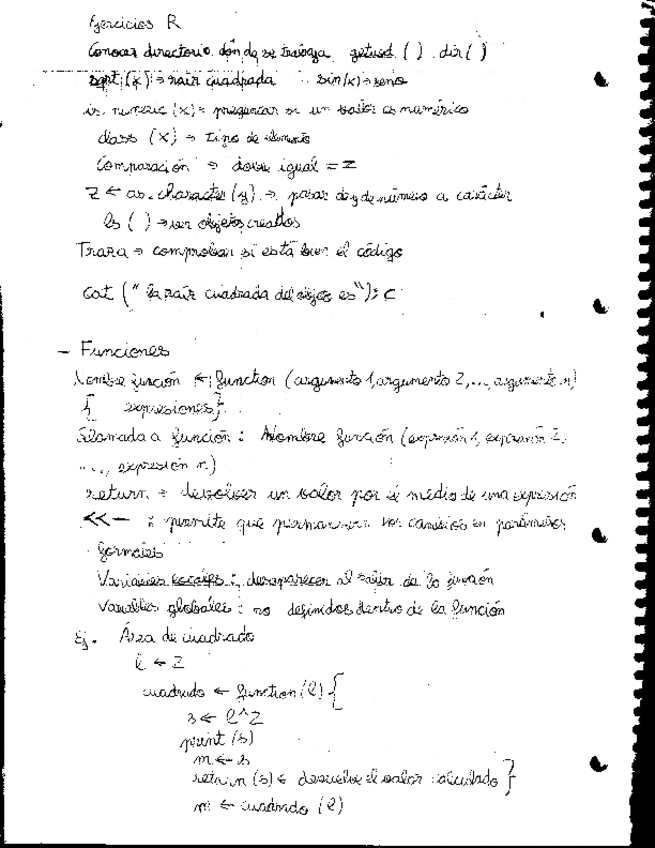 Ejercicios R
Conocer directorio donde se trabaja getwd () dir()
sqrt (x) → raíz cuadrada sin(x) → seno
is. numeric (x) = preguntar si un valor es numérico
class (x) → tipo de elemento
Comparación → doble igual = 2
Z ← as.character (y) → pasar de y de número a carácter
ls ( ) → ver objetos creados
Traza → comprobar si está bien el código
cat (" la raíz cuadrada del objeto es"); C
- Funciones
Nombre función ← function (argumento 1, argumento 2, ..., argumento n)
{ expresiones}
Llamada a función : Nombre función (expresión 1, expresión 2,
..., expresión n)
return = devolver un valor por el medio de una expresión
<<- : permite que permanezcan los cambios en parámetros
formales
Variables locales : desaparecen al salir de la función
Variables globales : no definidos dentro de la función
Ej. Área de cuadrado
l ← 2
cuadrado ← function (l) {
s ← l^2
print (s)
m ← s
return (s) ← devuelve el valor calculado }
m ← cuadrado (l)